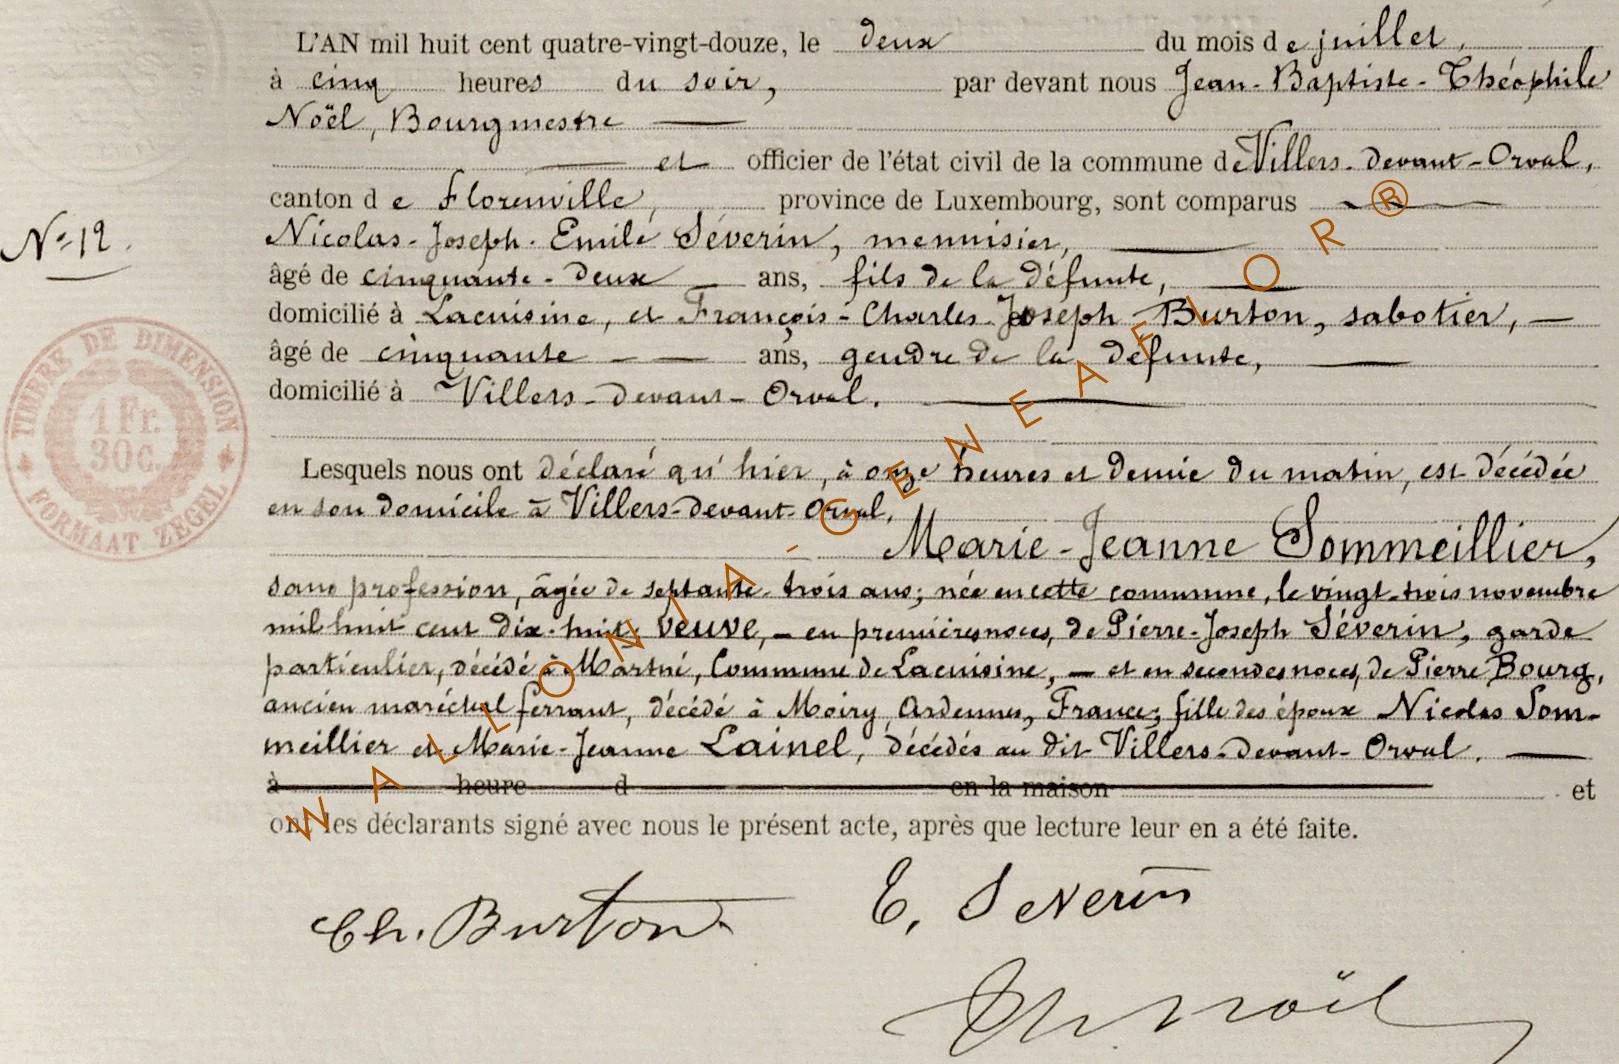 L'AN mil huit cent quatre-vingt-douze, le deux du mois de juillet,
à cinq heures du soir, par devant nous Jean-Baptiste-Théophile
Noël, Bourgmestre
et officier de l'état civil de la commune de Villers-devant-Orval,
canton de Florenville, province de Luxembourg, sont comparus
Nicolas-Joseph-Emile Séverin, menuisier,
N° 12.
âgé de cinquante-deux ans, fils de la défunte,
domicilié à Lacuisine, et François-Charles-Joseph Burton, sabotier,
âgé de cinquante ans, gendre de la défunte,
domicilié à Villers-devant-Orval.
TIMBRE DE DIMENSION
1 Fr.
30c.
FORMAAT ZEGEL
Lesquels nous ont déclaré qu'hier, à onze heures et demie du matin, est décédée
en son domicile à Villers-devant-Orval,
Marie-Jeanne Sommeillier,
sans profession, âgée de septante-trois ans; née en cette commune, le vingt-trois novembre
mil huit cent dix-huit; veuve, – en premières noces, de Pierre-Joseph Séverin, garde
particulier, décédé à Martué, Commune de Lacuisine, – et en secondes noces, de Pierre Bourg,
ancien maréchal ferrant, décédé à Moiry, Ardennes, France; fille des époux Nicolas Som-
meillier et Marie-Jeanne Lainel, décédés au dit Villers-devant-Orval.
à heure d en la maison et
ont les déclarants signé avec nous le présent acte, après que lecture leur en a été faite.
Ch. Burton
E. Severin
Th Noël
WALLONIA-GENEAFLOR®